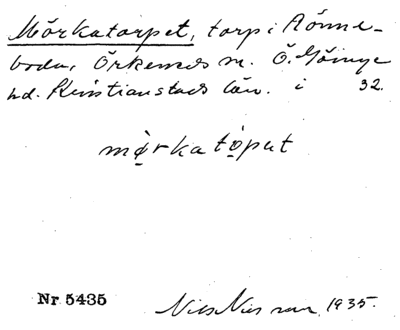 Mörkatorpet, torp i Rönne-
boda, Örkeneds sn. Ö. Göinge
hd. Kristianstads län. i 32.
mö̀rkatǫput
Nr 5435
Nils Nilsson 1935.